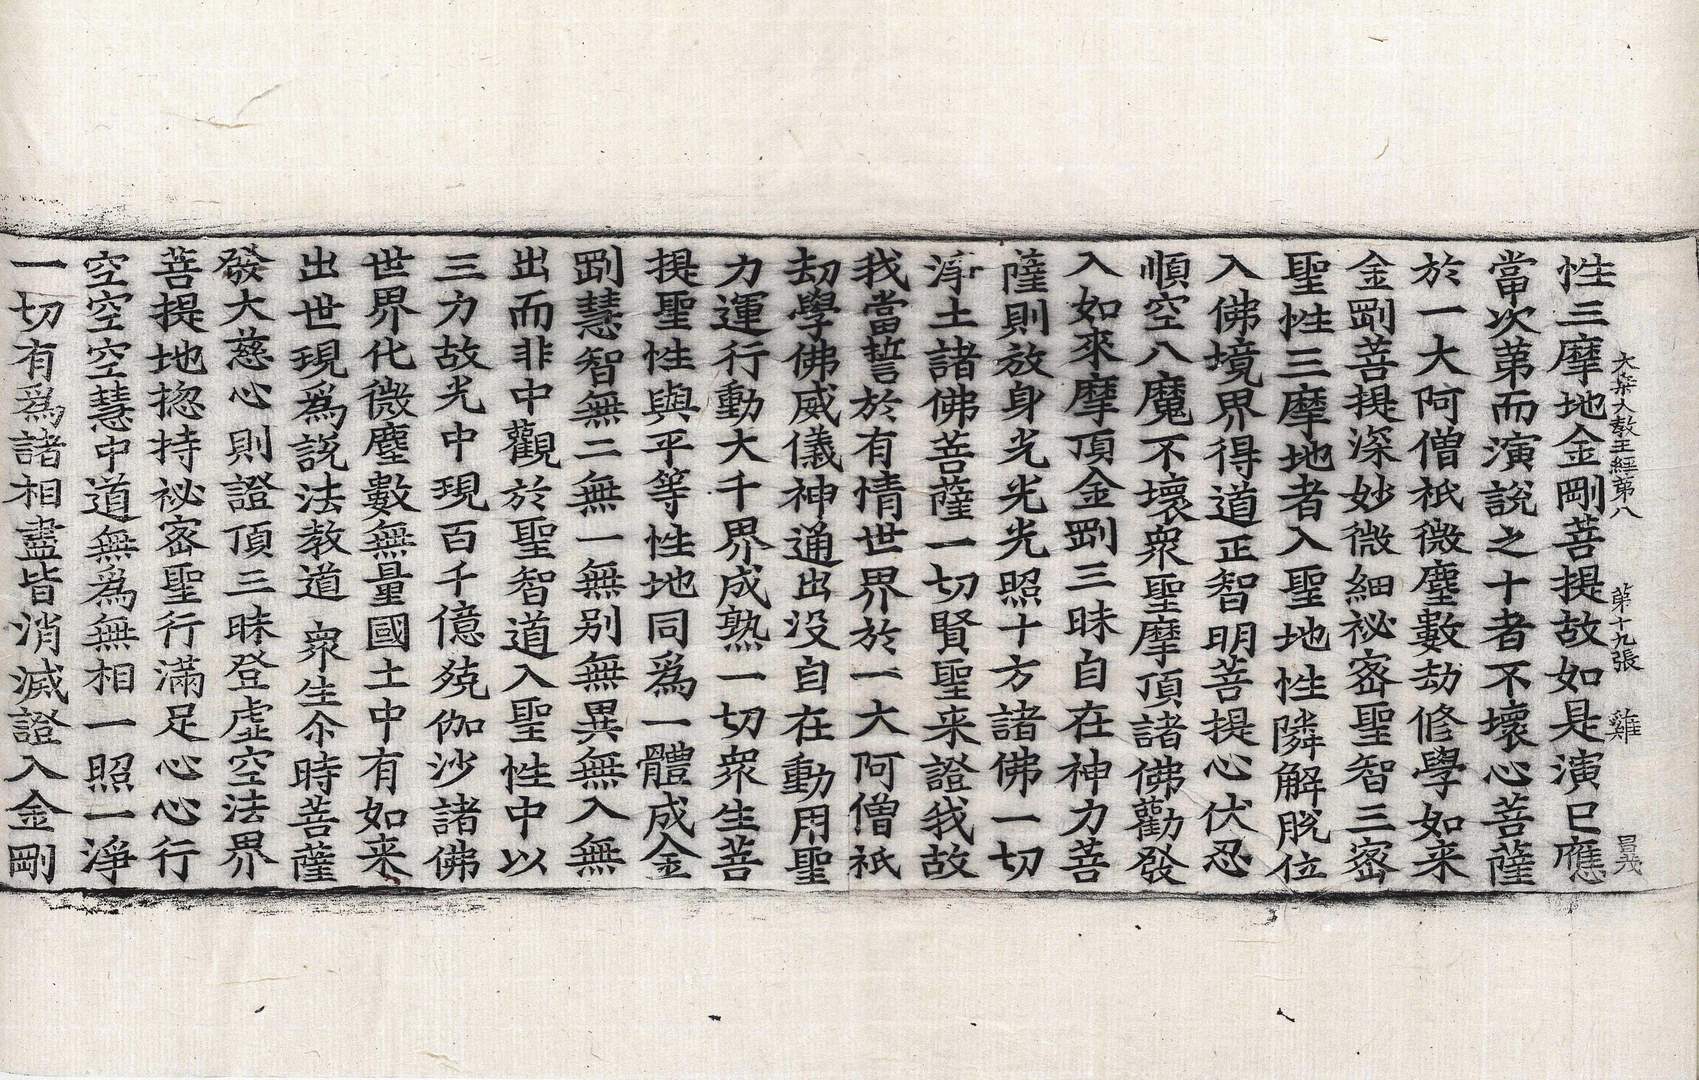 大乘大敎王經第八 第十九張 雞 昌茂
性三摩地金剛菩提故如是演巳應
當次第而演說之十者不壞心菩薩
於一大阿僧祇微塵數劫修學如来
金剛菩提深妙微細祕密聖智三密
聖性三摩地者入聖地性隣解脫位
入佛境界得道正智明菩提心伏忍
順空八魔不壞衆聖摩頂諸佛勸發
入如來摩頂金剛三昧自在神力菩
薩則放身光光光照十方諸佛一切
淨土諸佛菩薩一切賢聖来證我故
我當誓於有情世界於一大阿僧祇
劫學佛威儀神通出没自在動用聖
力運行動大千界成熟一切衆生菩
提聖性與平等性地同爲一體成金
剛慧智無二無一無别無異無入無
出而非中觀於聖智道入聖性中以
三力故光中現百千億殑伽沙諸佛
世界化微塵數無量國土中有如来
出世現爲說法教道衆生尒時菩薩
發大慈心則證頂三昧登虛空法界
菩提地捴持祕密聖行滿足心心行
空空空慧中道無爲無相一照一淨
一切有爲諸相盡皆消滅證入金剛